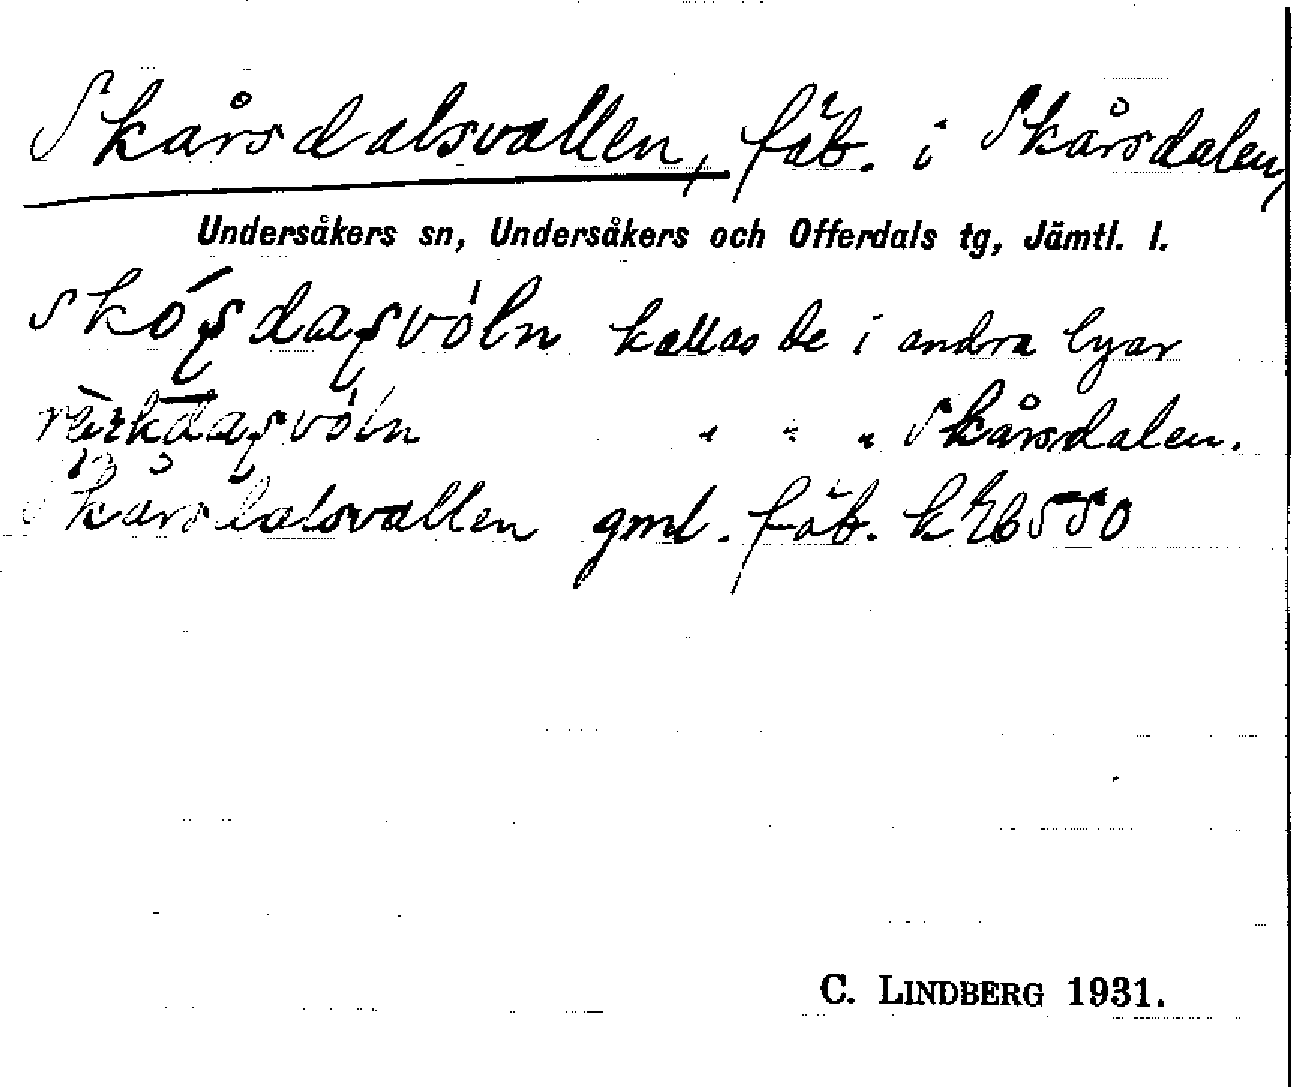 Skårsdalsvallen, fäb. i Skårsdalen,
Undersåkers sn, Undersåkers och Offerdals tg, Jämtl. l.
kallas de i andra byar
" " " Skårsdalen.
Skårsdalsvallen gml. fäb.
C. LINDBERG 1931.